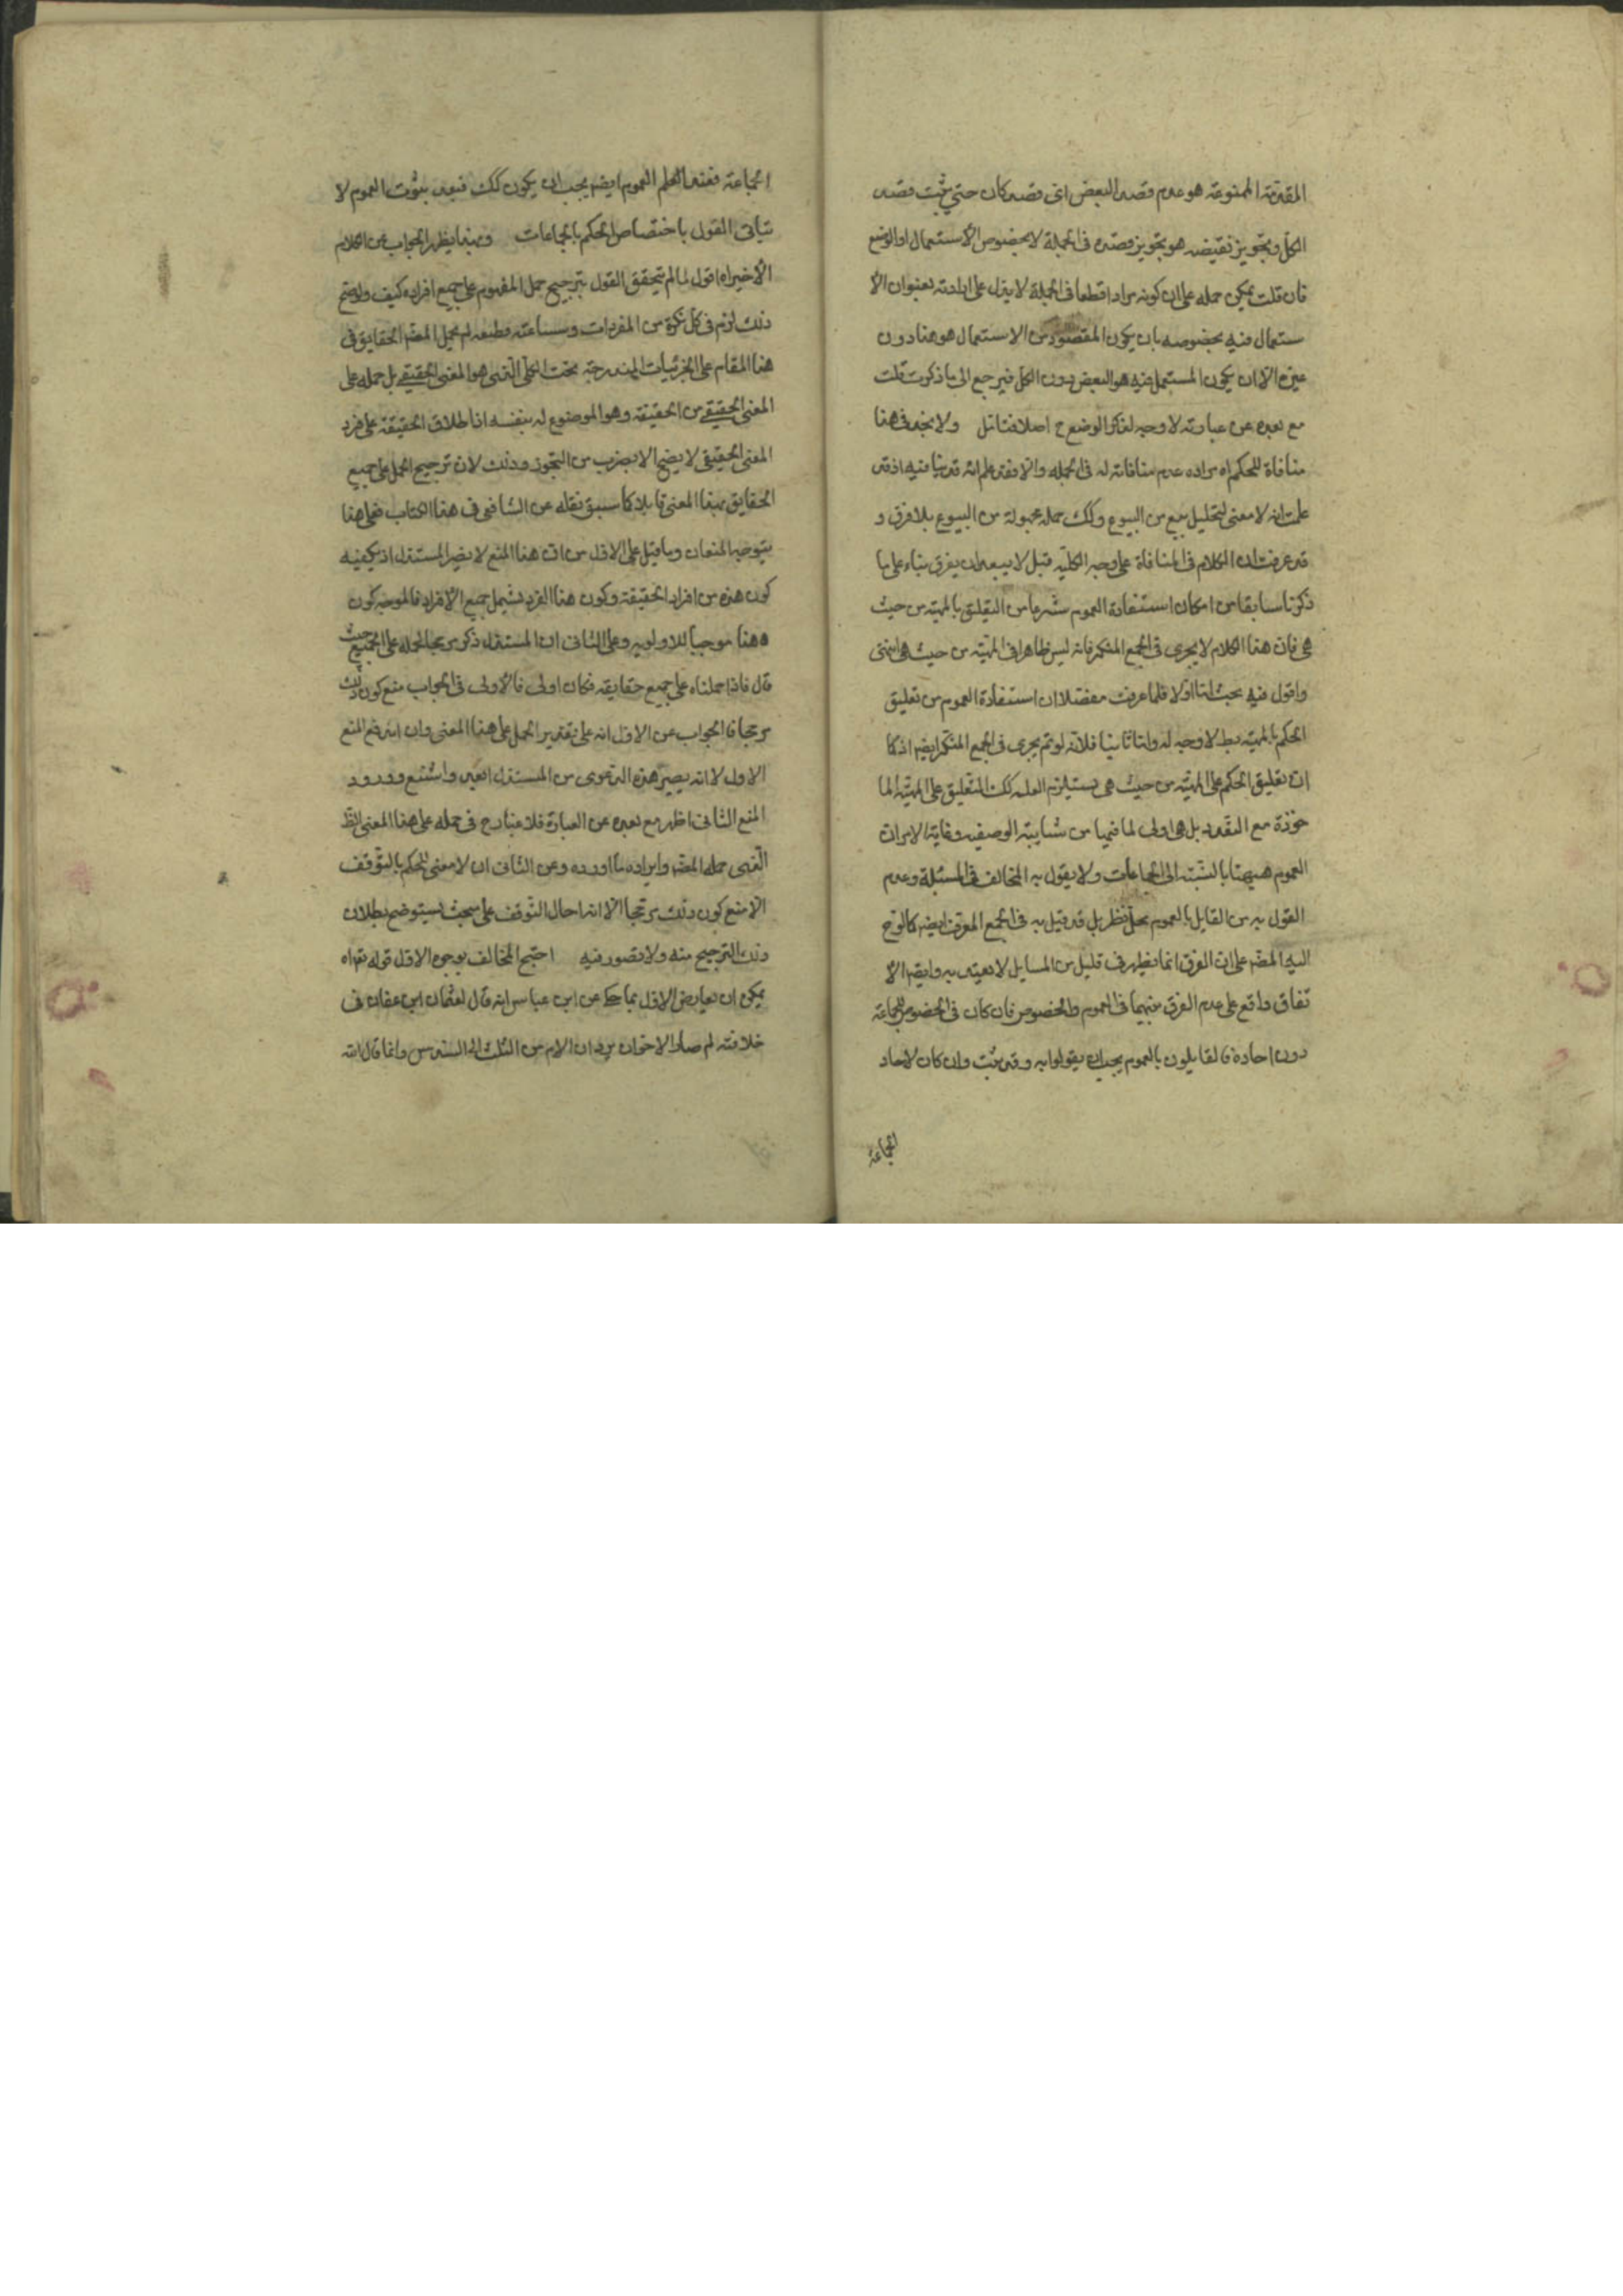 المقدمة الممنوعة هو عدم قصد البعض اى قصد كان حتى يثبت قصد
الكل وتجويز نقيضه هو تجويز قصده فى الجملة لا بخصوص الاستعمال او الوضع
فان قلت يمكن حمله على ان كونه مرادا قطعا فى الجملة لا يدل على ارادته بعنوان الا
ستعمال فيه بخصوصه بان يكون المقصود من الاستعمال هو هنا دون
غيره الا ان يكون المستعمل فيه هو البعض دون الكل فيرجع الى ما ذكرت قلت
مع بعده عن عبارته لا وجه لذكر الوضع ح اصلا فتامل ولا يخفى فى هذا
منافاة للحكم اه مراده عدم منافاته له فى الجملة والا فقد علم انه قد ينافيه اذ قد
علمت انه لا معنى لتحليل بيع من البيوع وكك حمله مجهولة من البيوع بلا فرق و
قد عرفت ان الكلام فى المنافاة على وجه الكلية قيل لا يبعد ان يفرق بناء على ما
ذكرنا سابقا من امكان استفادة العموم شرعا من التعليق بالمهية من حيث
هى فان هذا الكلام لا يجرى فى الجمع المنكر فانه ليس ظاهرا فى المهية من حيث هى انتهى
واقول فيه بحث اما اولا فلما عرفت مفصلا ان استفادة العموم من تعليق
الحكم بالمهية بط لا وجه له واما ثانيا فلانه لو تم يجرى فى الجمع المنكر ايضا اذ كما
ان تعليق الحكم على المهية من حيث هى يستلزم العلـ كك التعليق على المهية الما
خوذة مع التعدد بل هى اولى لما فيها من شايبة الوصفية وغاية الامر ان
العموم هيهنا بالنسبة الى الجماعات ولا يقول به المخالف فى المسئلة وعدم
القول به من القايل بالعموم محل نظر بل قد قيل به فى الجمع المعرف ايضا كما لوح
اليه المصـ على ان الفرق انما يظهر فى قليل من المسايل لا يعتد به وايضا الا
تفاق واقع على عدم الفرق بينهما فى العموم والخصوص فان كان فى الخصوص للجماعة
دون احاده فالقايلون بالعموم يجب ان يقولوا به وقد ثبت وان كان لاحاد
الجماعة
الجماعة فعند العلم العموم ايضا يجب ان يكون كك فبعد ثبوت العموم لا
يتاتى القول باختصاص الحكم بالجماعات وبهذا يظهر الجواب عن الكلام
الاخير اه اقول لما لم يتحقق القول بترجيح حمل المفهوم على جميع افراده كيف ولو صح
ذلك لزم فى كل نكرة من المفردات وشناعته فظيعة لم يحمل المصـ الحقايق فى
هذا المقام على الجزئيات المندرجة تحت الكلى الذى هو المعنى الحقيقى بل حمله على
المعنى الحقيقى من الحقيقة وهو الموضوع له بنفسه اذ اطلاق الحقيقة على فرد
المعنى الحقيقى لا يصح الا بضرب من التجوز وذلك لان ترجيح الحمل على جميع
الحقايق بهذا المعنى قايلا كما سبق نقله عن الشافعى فى هذا الكتاب فعلى هذا
يتوجه المنعان وما قيل على الاول من ان هذا المنع لا يضر المستدل اذ يكفيه
كون هذه من افراد الحقيقة وكون هذا الفرد يشمل جميع الافراد فالموجه كون
هذا موجبا للاولوية وعلى الثانى ان المستدل ذكر مرجحا لحمله على الجميع حيث
قال فاذا حملناه على جميع حقايقه فكان اولى فالاولى فى الجواب منع كون ذلك
مرجحا فالجواب عن الاول انه على تقدير الحمل على هذا المعنى وان اندفع المنع
الاول لا انه يصير هذه الدعوى من المستدل ابعد واشنع وورود
المنع الثانى اظهر مع بعده عن العبارة فلا غبار ح فى حمله على هذا المعنى الظ
الذى حمله المصـ وايراده ما اورده وعن الثانى ان لا معنى للحكم بالتوقف
الا منع كون ذلك مرجحا الا انه احال التوقف على مبحث يستوضح بطلان
ذلك الترجيح منه ولا قصور فيه احتج المخالف بوجوه الاول قوله تع اه
يمكن ان يعارض الاول بما حكى عن ابن عباس انه قال لعثمان ابن عفان فى
خلافته لم صار الاخوان يردان الام من الثلث الى السدس وانما قال الله